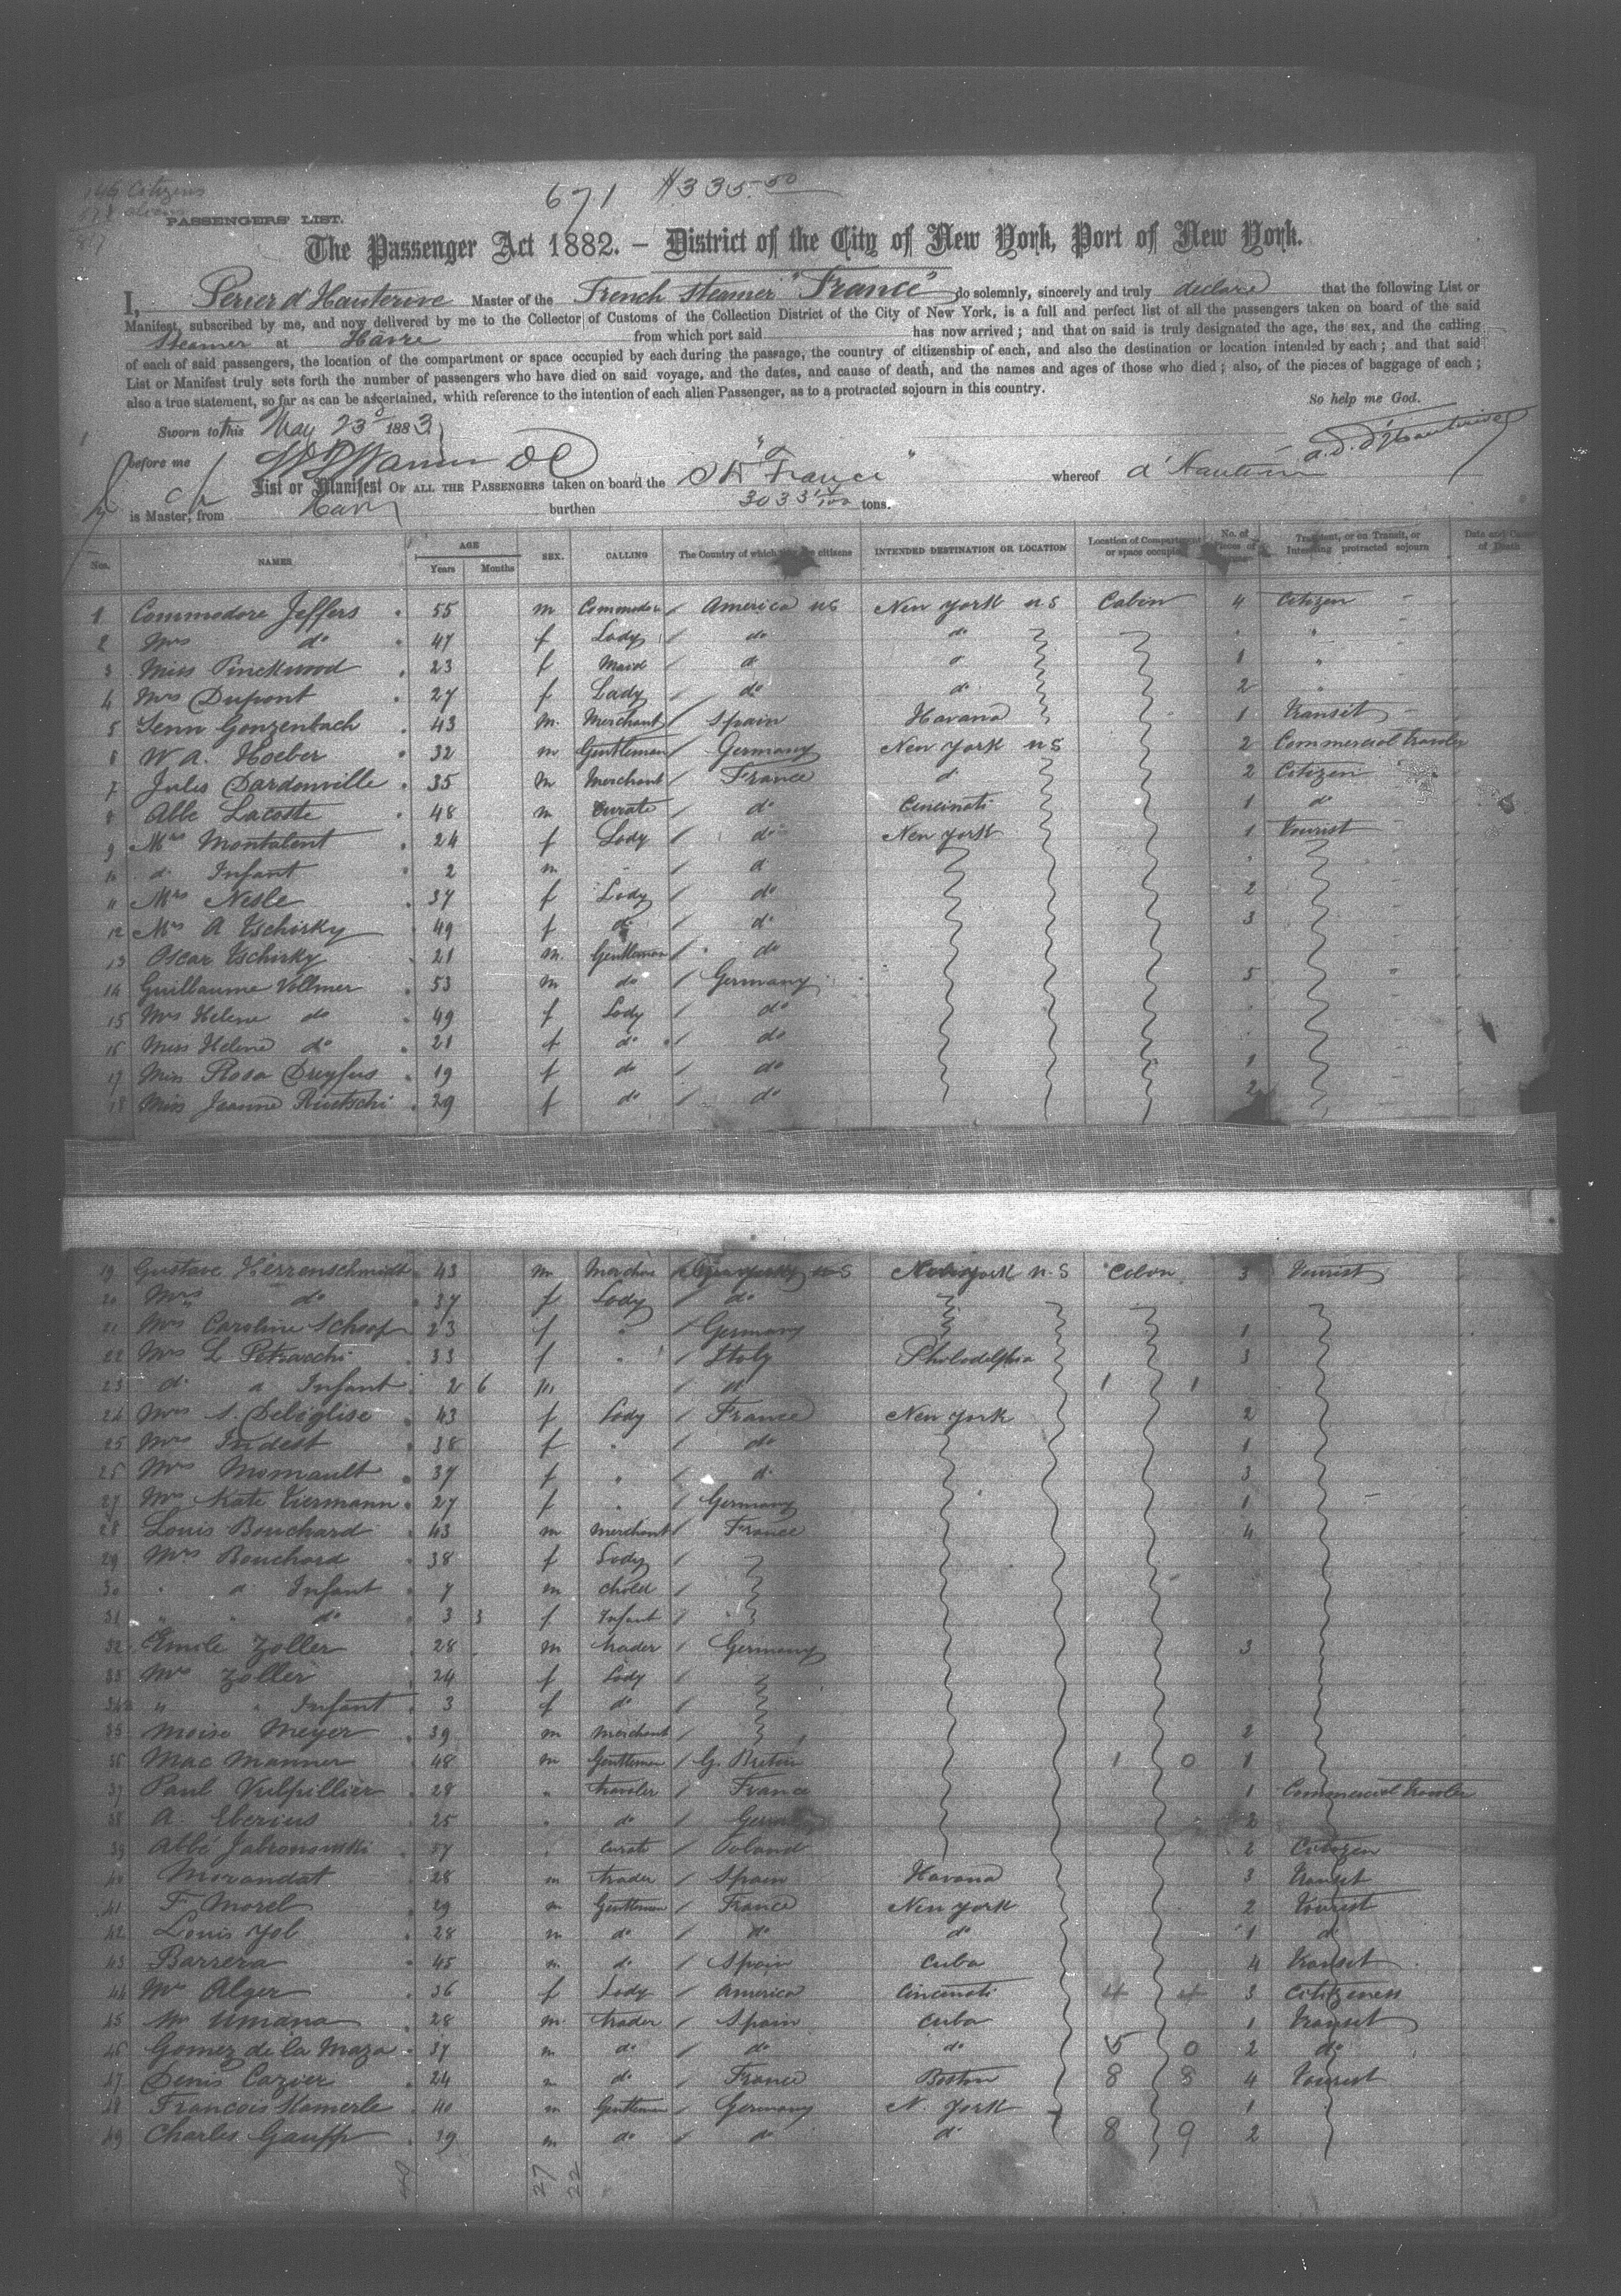 Citizens
671 $335.50
PASSENGERS' LIST.
The Passenger Act 1882. — District of the City of New York, Port of New York.
I, Perier d'Hauterive Master of the French steamer "France" do solemnly, sincerely and truly declare that the following List or
Manifest, subscribed by me, and now delivered by me to the Collector of Customs of the Collection District of the City of New York, is a full and perfect list of all the passengers taken on board of the said
Steamer at Havre from which port said has now arrived; and that on said is truly designated the age, the sex, and the calling
of each of said passengers, the location of the compartment or space occupied by each during the passage, the country of citizenship of each, and also the destination or location intended by each; and that said
List or Manifest truly sets forth the number of passengers who have died on said voyage, and the dates, and cause of death, and the names and ages of those who died; also, of the pieces of baggage of each;
also a true statement, so far as can be ascertained, whith reference to the intention of each alien Passenger, as to a protracted sojourn in this country. So help me God.
Sworn to this May 23d 1883
before me a.d. d'Hauterive
List or Manifest OF ALL THE PASSENGERS taken on board the "France" whereof d'Hauterive
is Master, from Havre burthen 3033 tons.
No. NAMES AGE Years Months SEX. CALLING The Country of which citizens INTENDED DESTINATION OR LOCATION Location of Compartment or space occupied No. of Pieces of Transient, or on Transit, or Intending protracted sojourn Date and Cause of Death
1 Commodore Jeffers 55 m Commodore America US New York US Cabin 4 Citizen
2 Mrs do 47 f Lady do do
3 Miss Pinckwood 23 f Maid d d 1
4 Mrs Dupont 27 f Lady do do 2
5 Senn Gonzenbach 43 m. Merchant Spain Havana 1 transit
6 W A. Hoeber 32 m Gentleman Germany New York US 2 Commercial traveler
7 Jules Dardonville 35 m Merchant France d 2 Citizen
8 Abbe Lacotte 48 m Curate do Cincinati 1 do
9 Mrs Montalent 24 f Lady do New York 1 tourist
10 d. Infant 2 m d
11 Mrs Nesle 37 f Lady do 2
12 Mrs A Tschirky 49 f do do 3
13 Oscar Tschirky 21 m. Gentleman do
14 Guillaume Vollmer 53 m do Germany 5
15 Mrs Helene do 49 f Lady do
16 Miss Helene do 21 f do do
17 Miss Rosa Dreyfus 19 f do do 1
18 Miss Jeanne Ruetschi 29 f do do 2
19 Gustave Herrenschmidt 43 m US New York U.S Cabin 3 tourist
20 Mrs do 37 f Lady do
21 Mrs Caroline Schoof 23 f " Germany 1
22 Mrs L Petracchi 33 f " Italy Philadelphia 3
23 d. a Infant 2 6 m d 1 1
24 Mrs S. Debéglise 43 f Lady France New York 2
25 Mrs Indest 38 f " do 1
26 Mrs Momault 37 f " d. 3
27 Mrs Kate Viermann 27 f " Germany 1
28 Louis Bouchard 43 m merchant France 4
29 Mrs Bouchard 38 f Lady
30 " a Infant 7 m child
31 " " do 3 3 f Infant
32 Emile Zoller 28 m trader Germany 3
33 Mrs Zoller 24 f Lady
34 " " Infant 3 f do
35 Moise Meyer 39 m merchant 2
36 Mac Manner 48 m Gentleman G. Bretain 1 0 1
37 Paul Vulpillier 28 " traveler France 1 Commercial traveler
38 A. Eberius 25 " do 2
39 Abbé Jabronowski 57 " curate Poland 2 Citizen
40 Morandat 28 m trader Spain Havana 3 transit
41 F Morel 29 m Gentleman France New York 2 tourist
42 Louis Job 28 m do do do 1 d
43 Barrera 45 m. d. Spain Cuba 4 transit
44 Mrs Alger 36 f Lady America Cincinati 4 4 3 citizeness
45 Mr Umana 28 m. trader Spain Cuba 1 transit
46 Gomez de la Maza 37 m do do do 5 0 2 do
47 Denis Cazier 24 m do France Boston 8 8 4 tourist
48 Francois Hamerle 40 m Gentleman Germany N. York 1
49 Charles Gauff 39 m do do d. 8 9 2
27 22